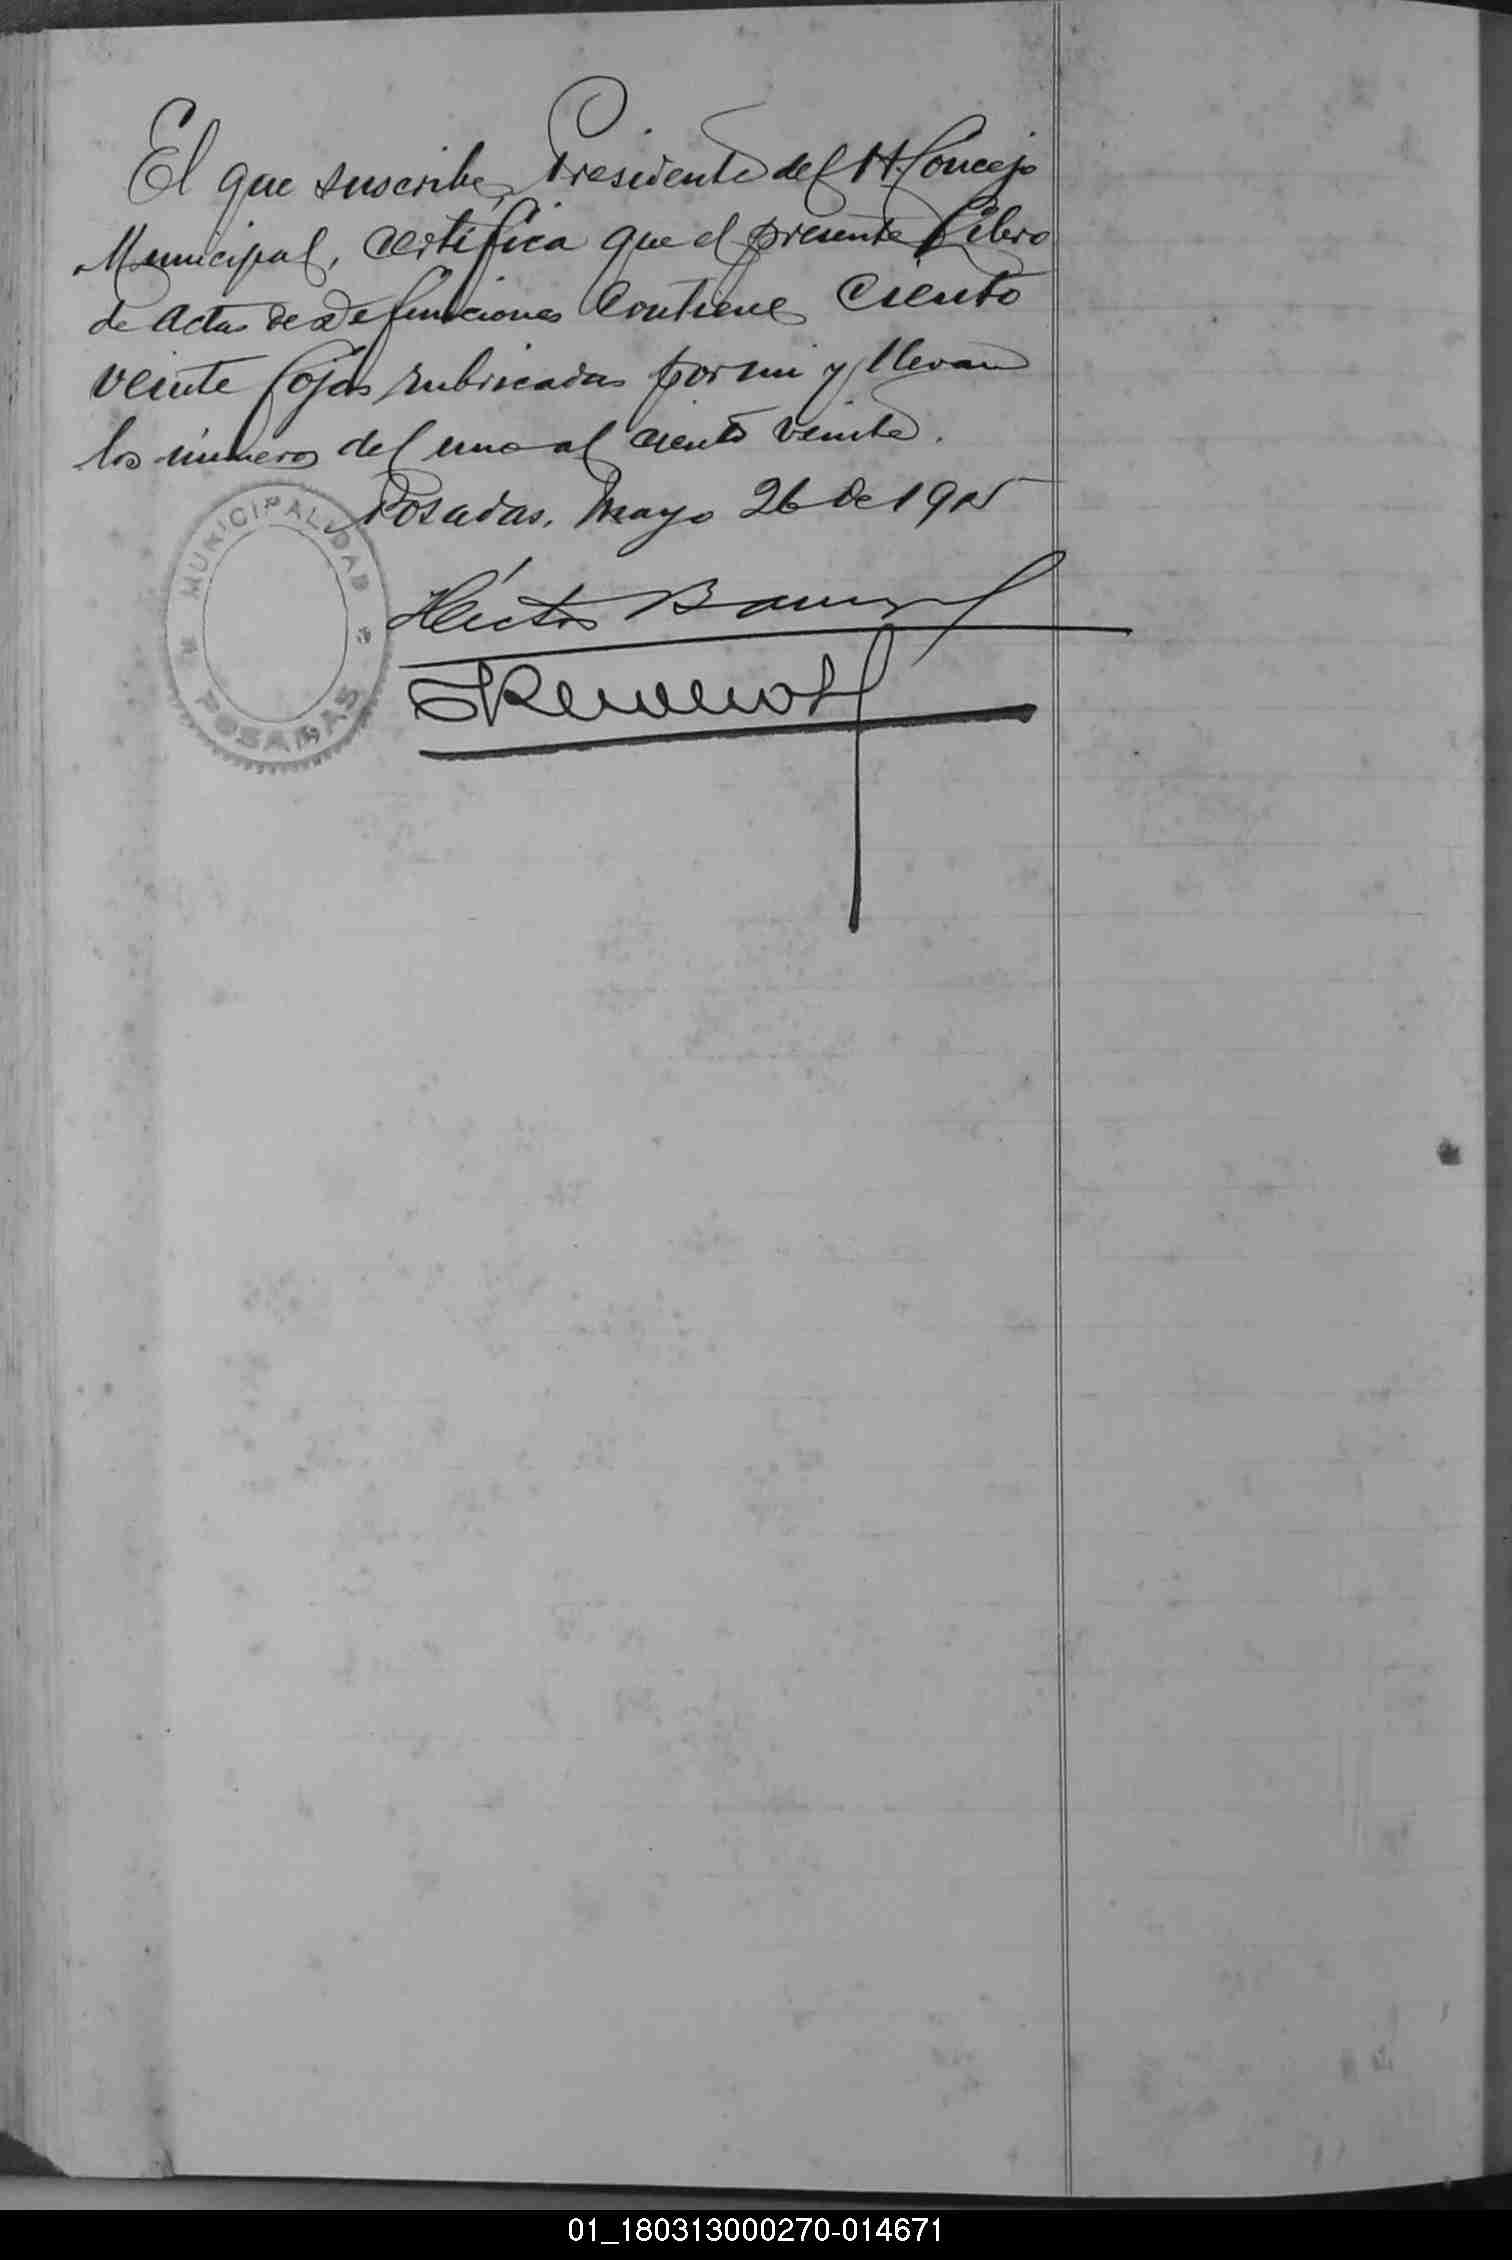 El que suscribe, Presidente del H. Concejo
Municipal, certifica que el presente Libro
de Actas de Defunciones contiene ciento
veinte fojas rubricadas por mi y llevan
los números del uno al ciento veinte.
Posadas, Mayo 26 de 1915
MUNICIPALIDAD
POSADAS
Héctor
01_180313000270-014671